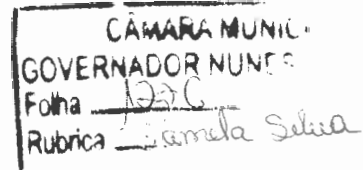 CÂMARA MUNIC
GOVERNADOR NUNES
Folha
Rubrica Pamela Selua